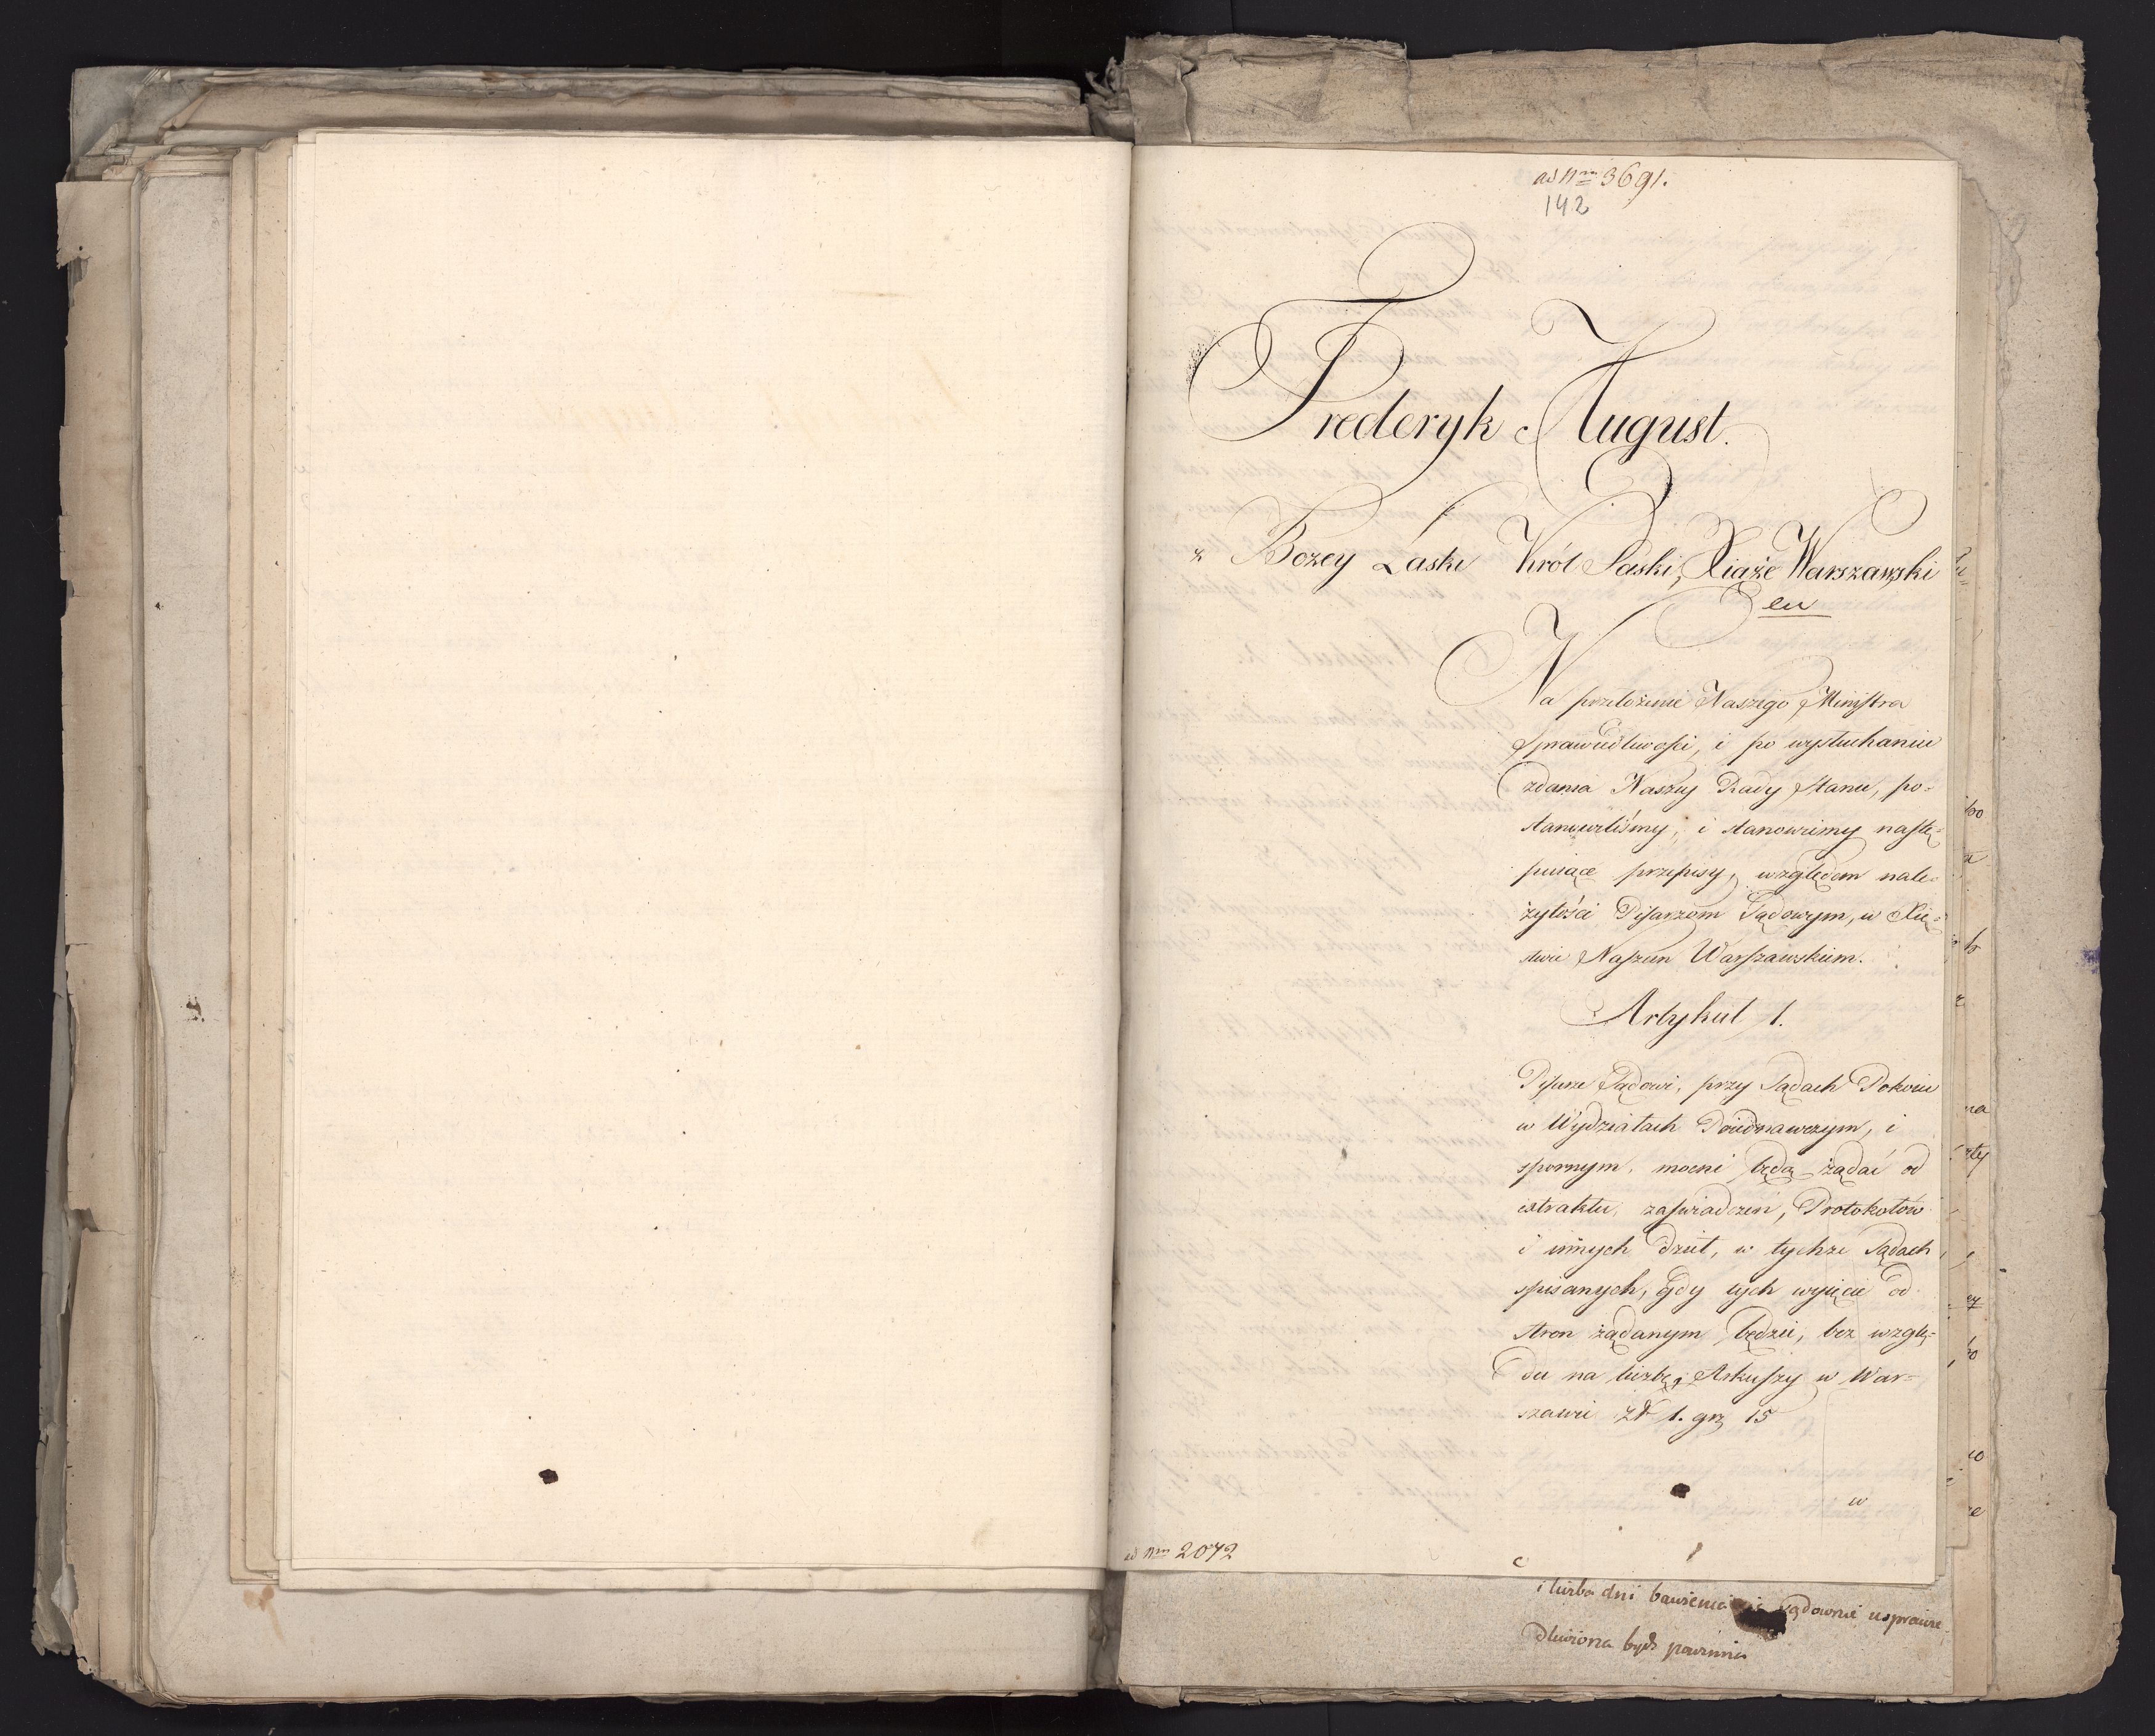 ad Nrm 3691.
142
Frederyk August.
z Bozey Łaski Król Saski, Xiąże Warszawski
etc
Na przełożenie Naszego Ministra
Sprawiedliwości, i po wysłuchaniu
zdania Naszey Rady Stanu, po=
stanowiliśmy, i stanowimy nastę=
puiące przepisy, względem nale=
żytości Pisarzom Sądowym, w Xię=
stwie Naszem Warszawskiem.
Artykuł 1.
Pisarze Sądowi, przy Sądach Pokoiu
w Wydziałach Poiednawczym, i
spornym, mocni będą żądać od
extraktu, zaświadczeń, Protokołów
i innych dzieł, w tychże Sądach
spisanych, gdy tych wyięcie od
stron żądanym będzie, bez wzglę=
du na liczbę Arkuszy w War=
szawie Zł 1. gr 15
w
ad Nrm 2072
i liczba dni bawienia sądownie usprawie
dliwiona bydź powinna